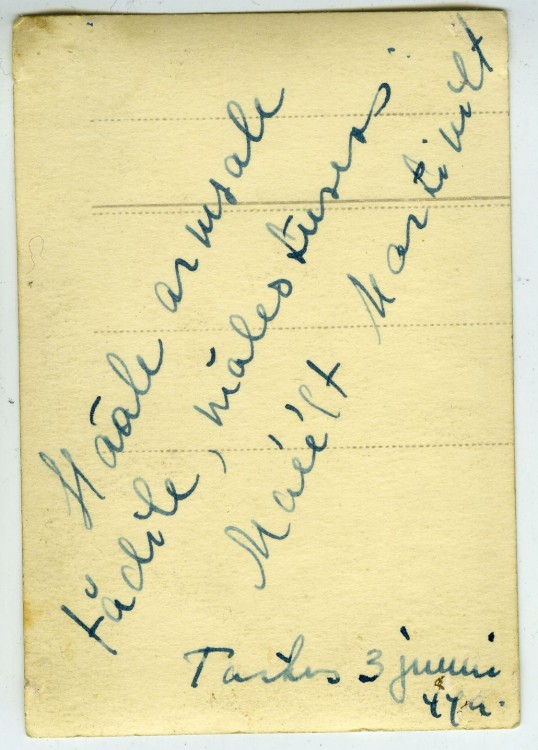 Hääle armsale
tädile, mälestuseks
Martinilt
Tartus 3 juuni
44 a.